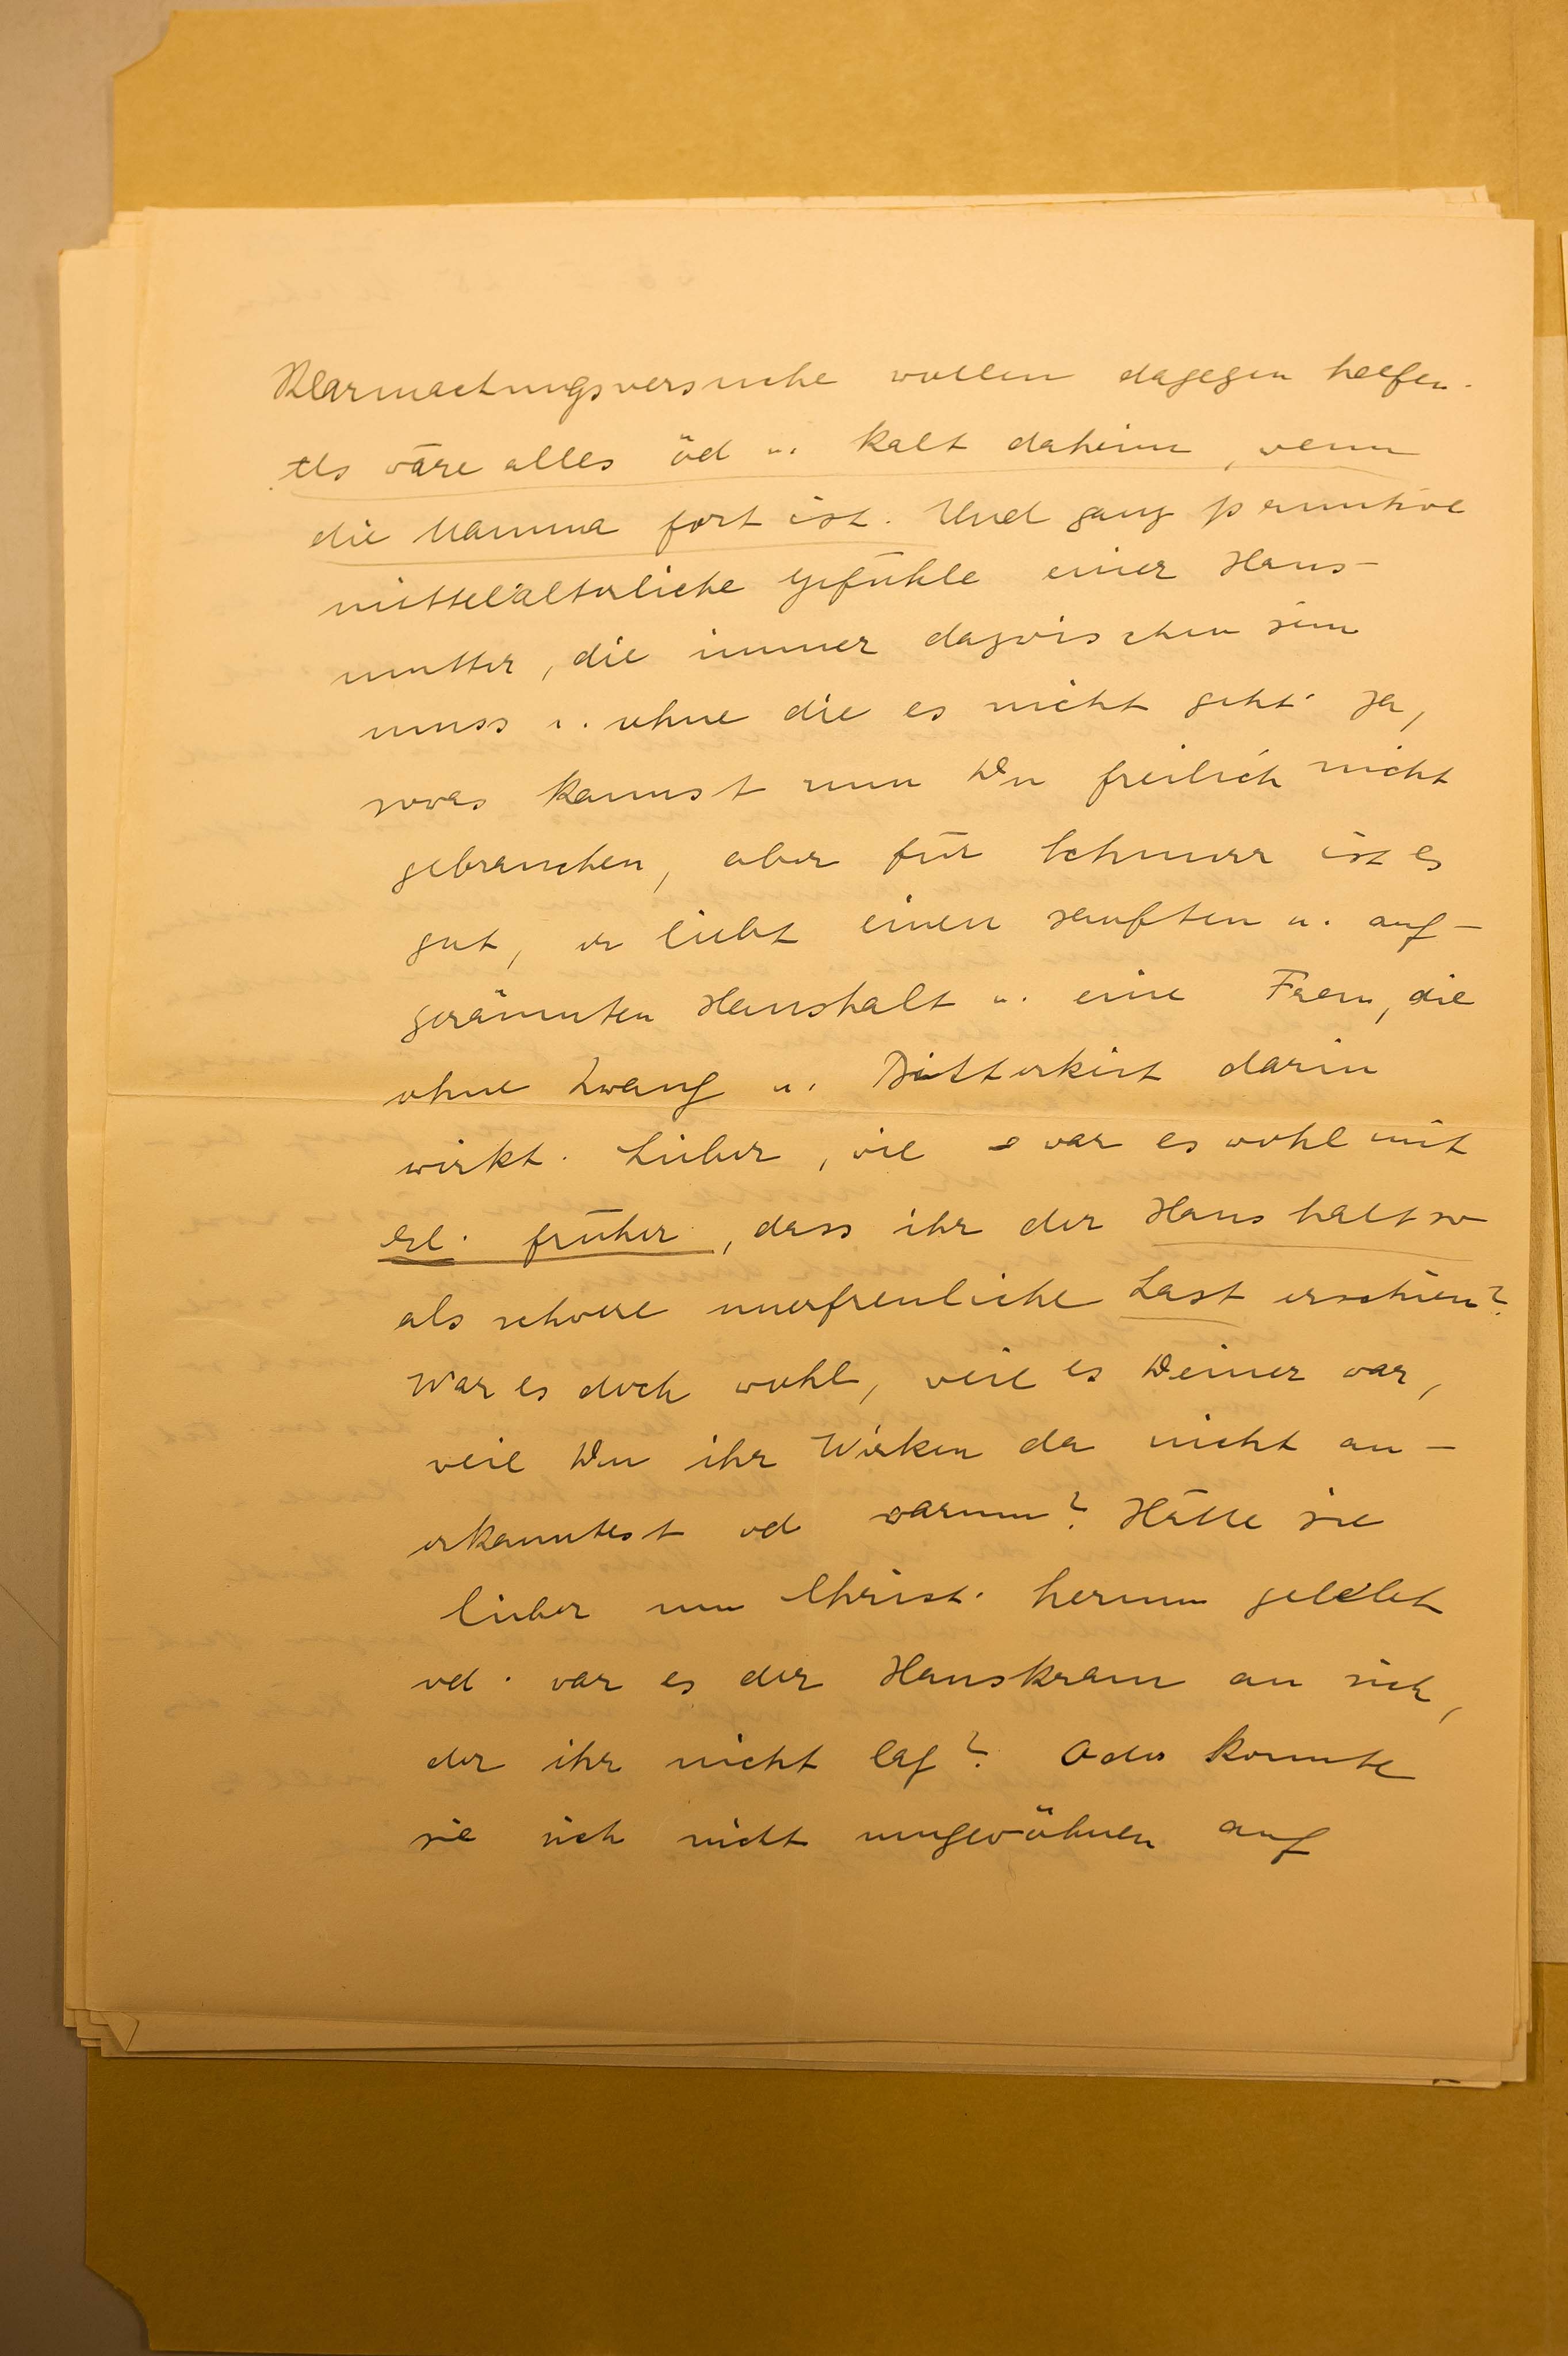 Klarmachungsversuche wollen dagegen helfen.
Als wäre alles öd u. kalt daheim, wenn
die Mamma fort ist. Und ganz primitive
mittelalterliche Gefühle einer Haus-
mutter, die immer dazwischen sein
muss u. ohne die es nicht geht. Ja,
sowas kannst nun Du freilich nicht
gebrauchen, aber für Schnurr ist es
gut, er liebt einen sanften u. auf-
geräumten Haushalt u. eine Frau, die
ohne Zwang u. Bitterkeit darin
wirkt. Lieber, wie war es wohl mit
El. früher, dass ihr der Haushalt so
als schwere unerfreuliche Last erschien?
War es doch wohl, weil es Deiner war,
weil Du ihr Wirken da nicht an-
erkanntest od warum? Hätte sie
lieber um Christ. herum gelebt
od. war es der Hauskram an sich,
der ihr nicht lag? Oder konnte
sie sich nicht umgewöhnen auf